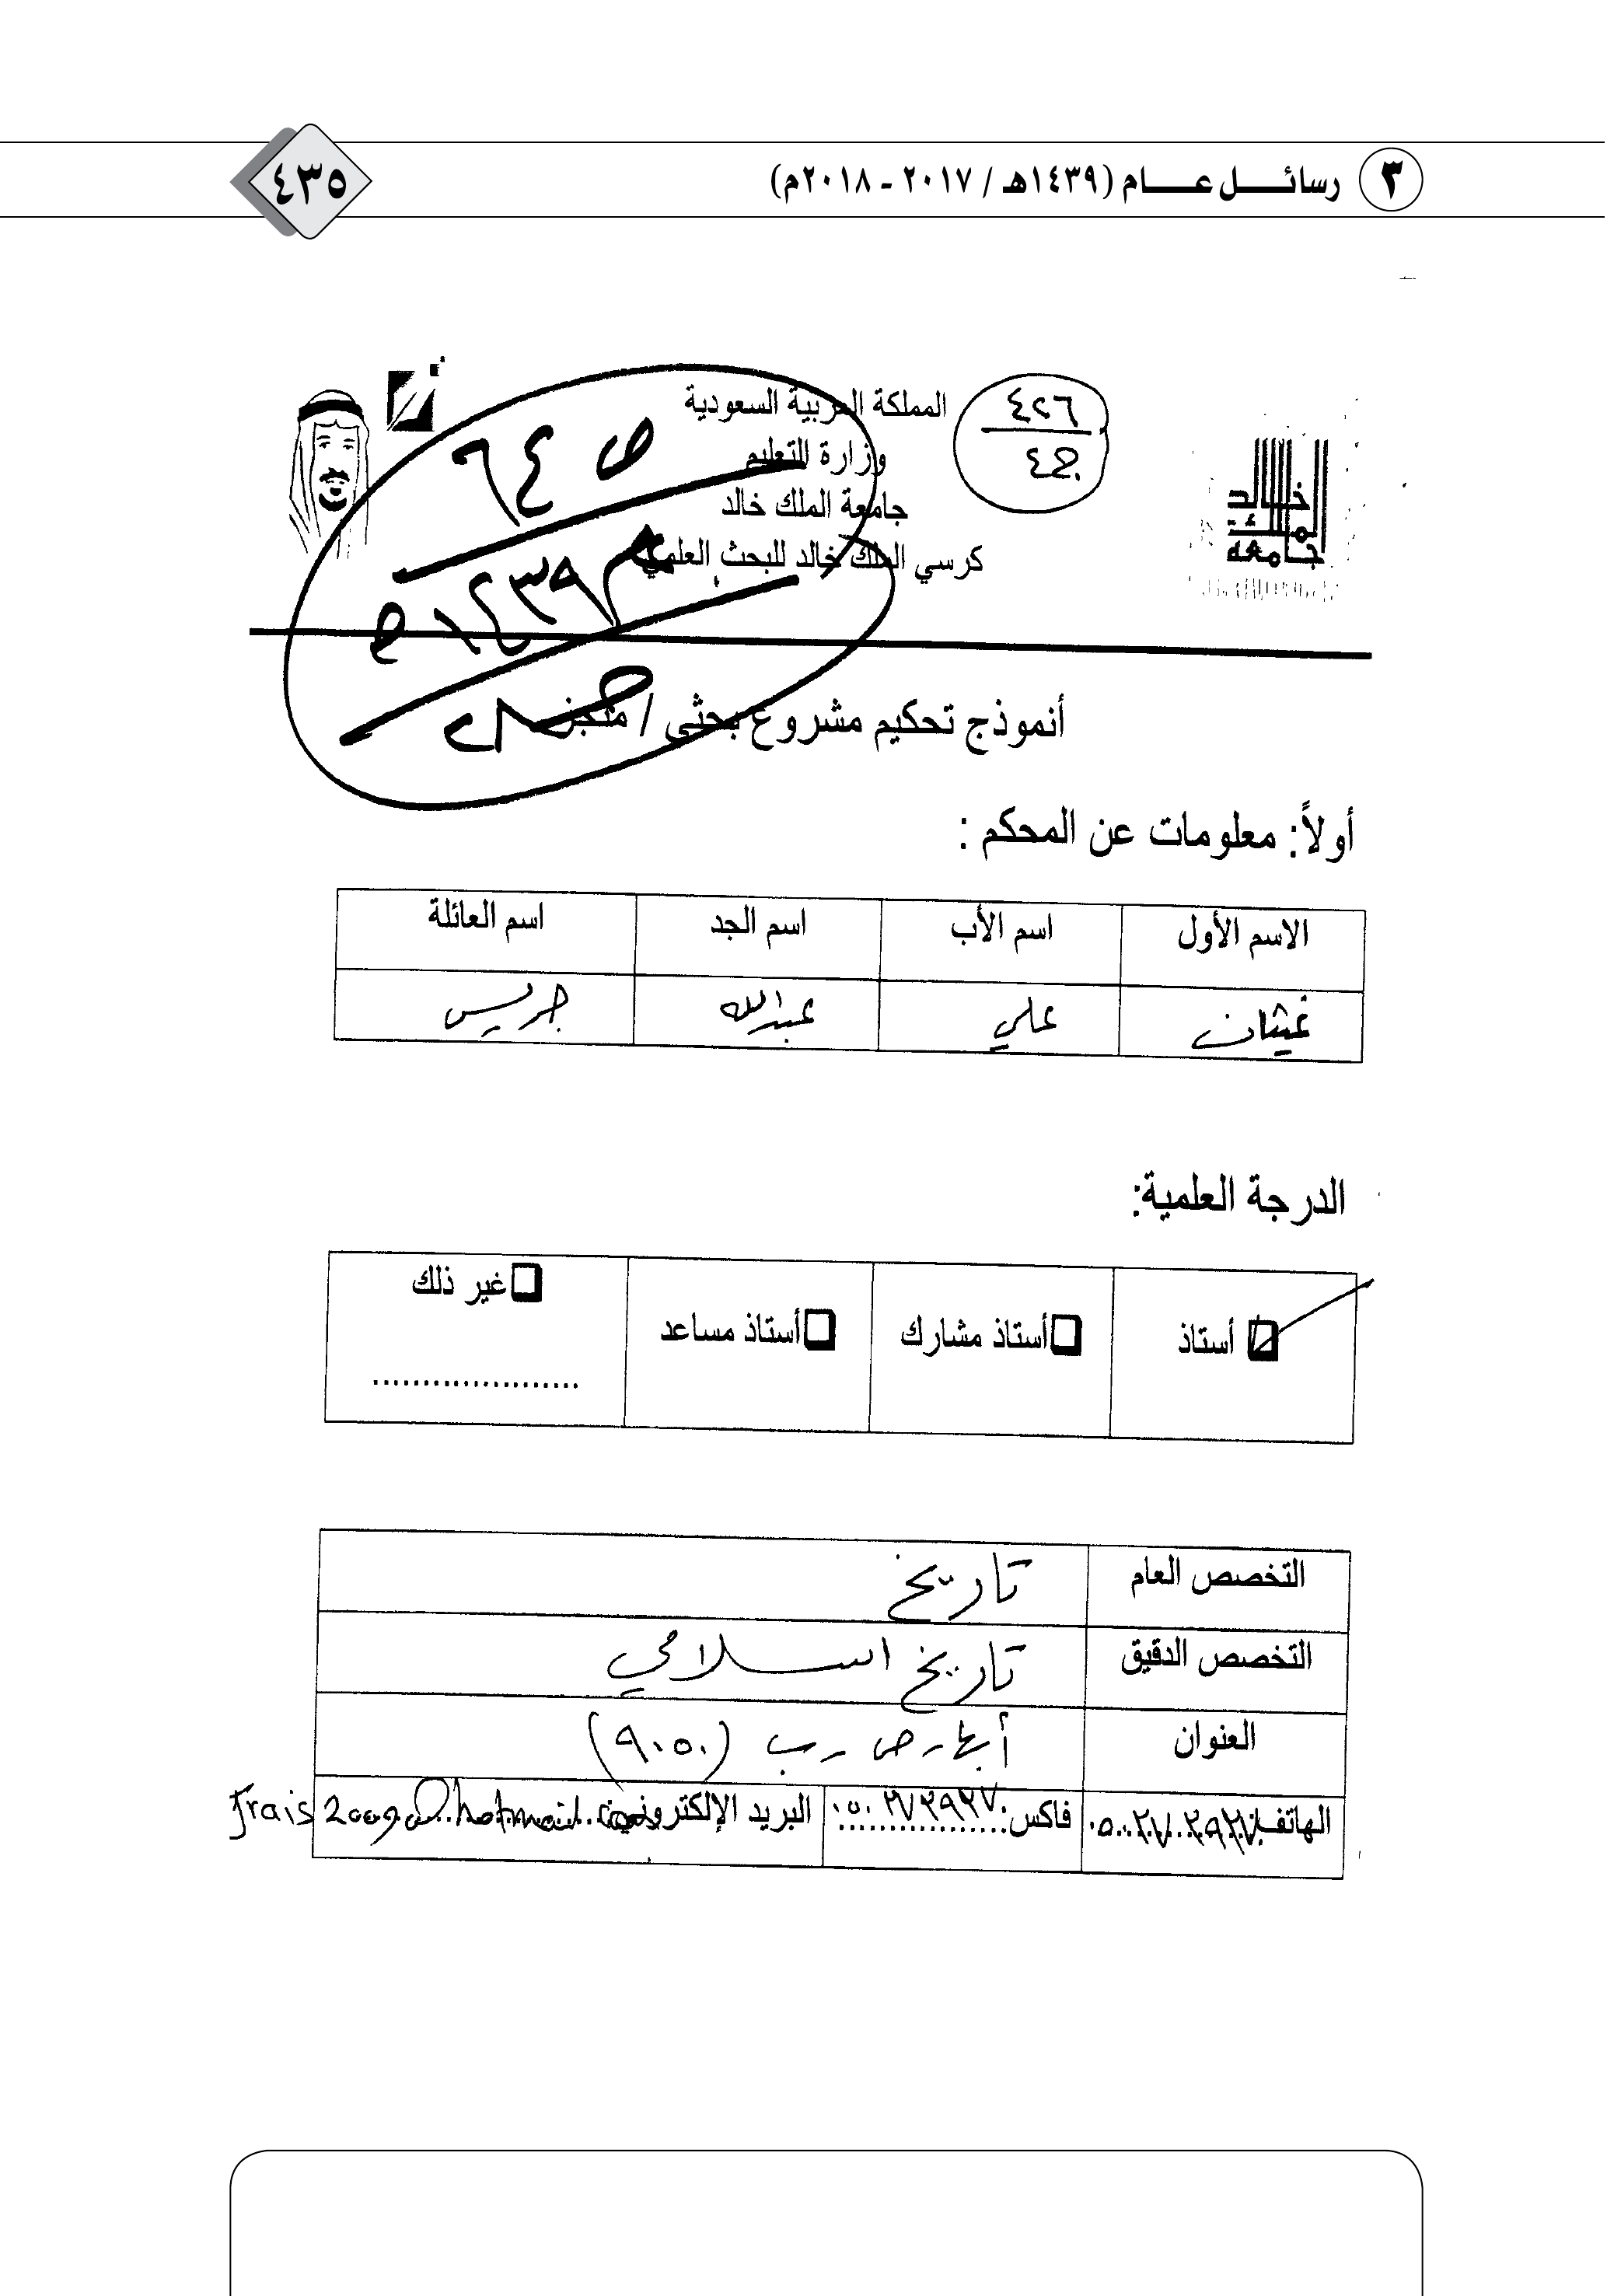 ٣ رسائل عام (١٤٣٩هـ / ٢٠١٧ - ٢٠١٨م)
٤٣٥
المملكة العربية السعودية
وزارة التعليم
جامعة الملك خالد
كرسي الملك خالد للبحث العلمي
٤٢٦
ص ٤٦
١٤٣٩هـ
جامعة الملك خالد
أنموذج تحكيم مشروع بحثي / منجز
أولاً: معلومات عن المحكم :
الاسم الأول اسم الأب اسم الجد اسم العائلة
غيثان علي عبدالله جريس
الدرجة العلمية:
أستاذ أستاذ مشارك أستاذ مساعد غير ذلك
....................
التخصص العام تاريخ
التخصص الدقيق تاريخ اسلامي
العنوان أبها - ص - ب (٩٠٥٠)
الهاتف: فاكس: البريد الإلكتروني: